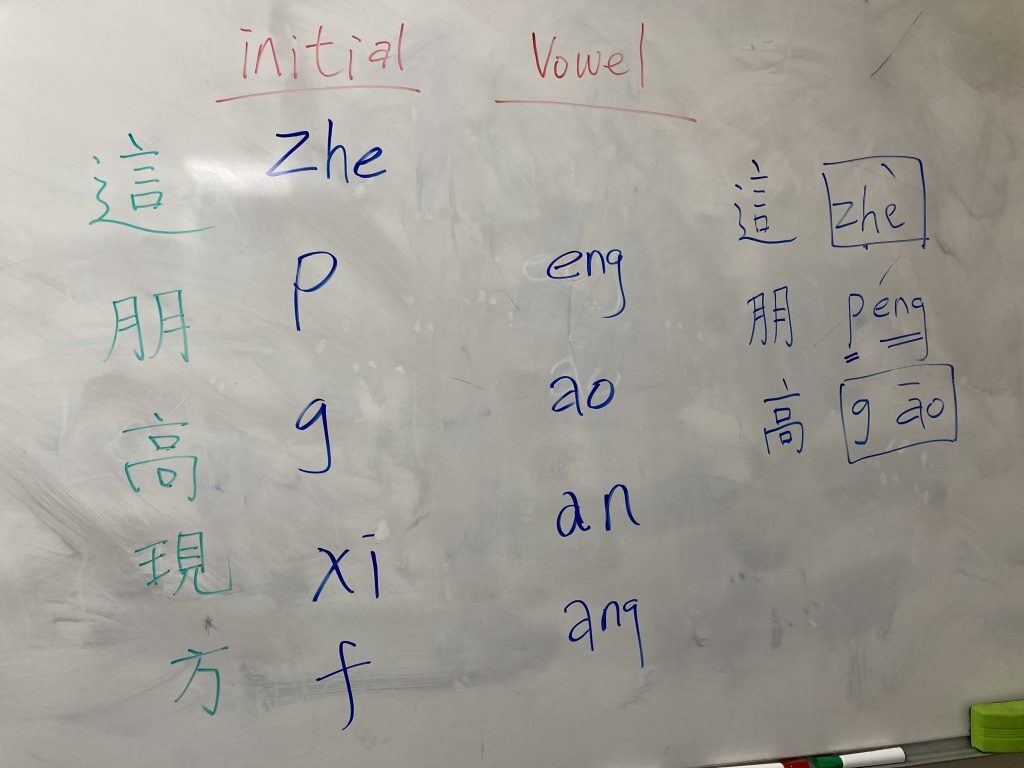 initial Vowel
這 zhe 這 zhè
朋 p eng 朋 péng
高 g ao 高 g āo
現 xi an
方 f ang